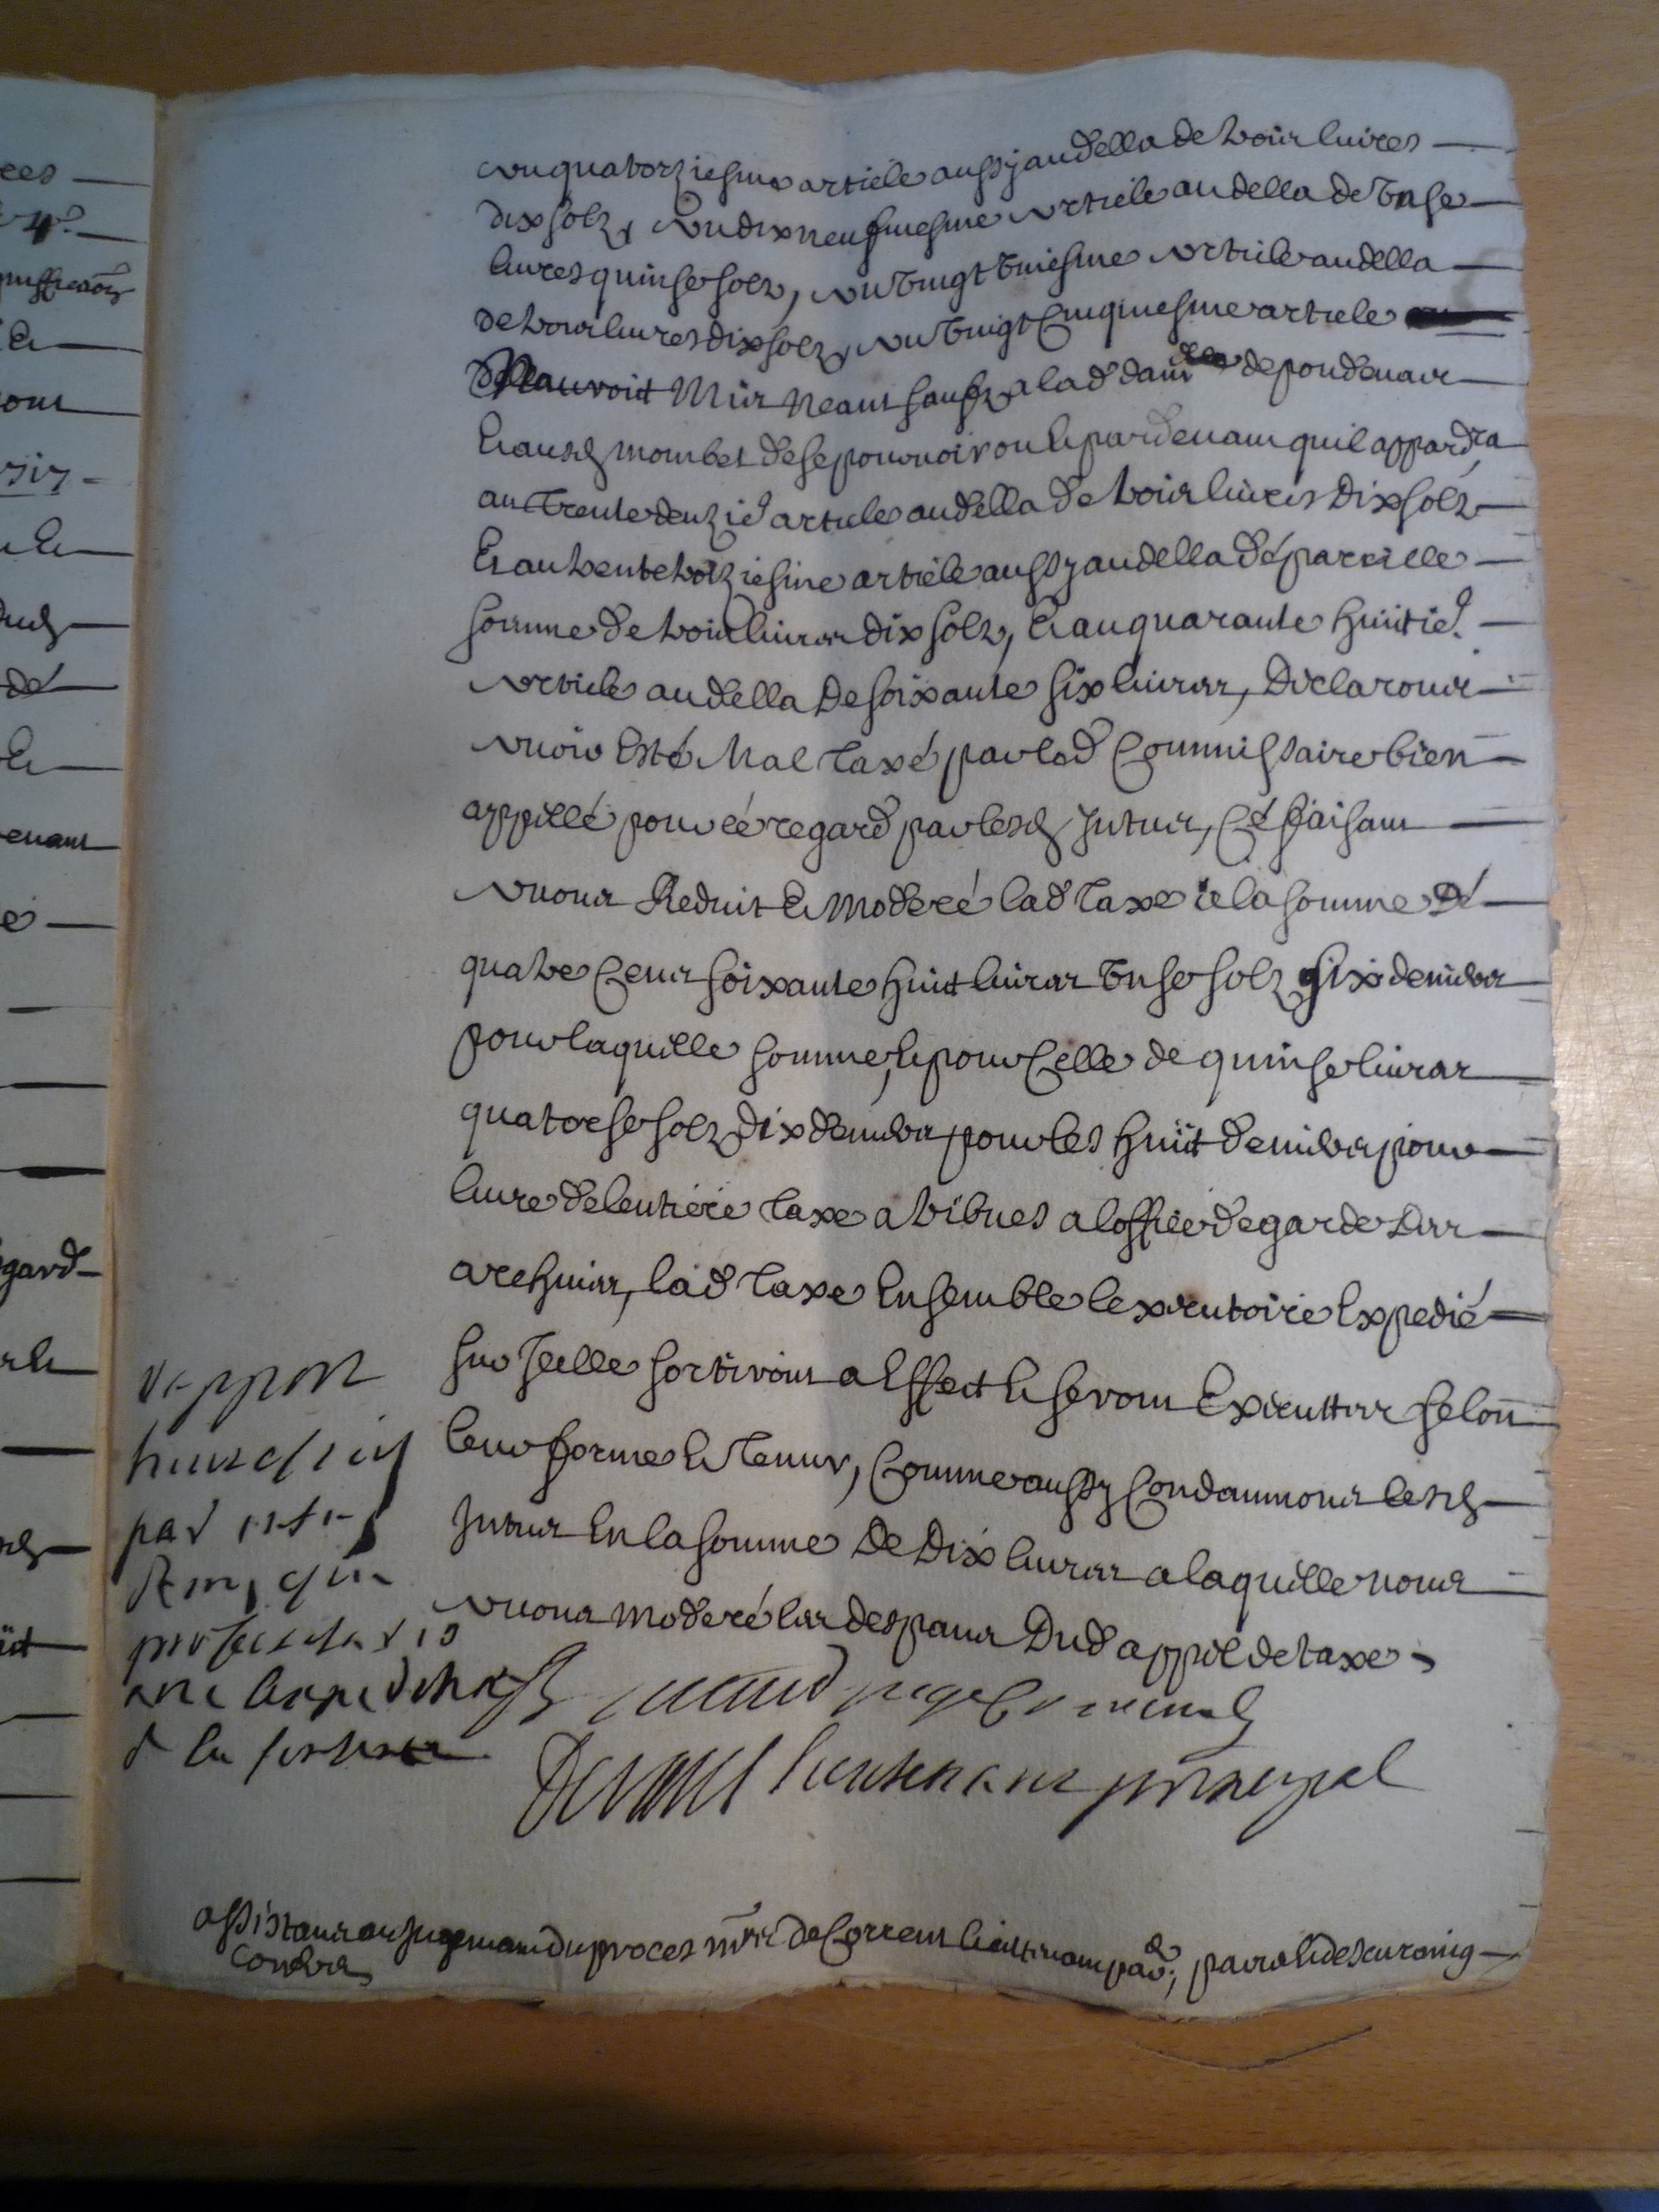 au quatorziesme article aussy au della de trois livres
dix solz, au dix neufviesme article au della de unse
livres quinse solz, au vingt uniesme article au della
de trois livres dix solz, au vingt cinquiesme article
mis neant sauf a lad dam<sup>lle</sup> de pondenair
et ausd mombet de se pourvoir ou et pardevant quil appard<sup>ra</sup>
au trente deuzie article au della de trois livres dix solz
et au trente troiziesme article aussy au della de pareille
somme de trois livres dix solz, et au quarante huitie.
article au della de soixante six livres, declarons
avoir esté mal taxé par led commissaire bien
appellé pour ce regard par lesd Jutus, ce faisant
avons reduit et moderé lad taxe a la somme de
quatre cens soixante huit livres unse solz six deniers
pour laquelle somme, et pour celle de quinse livres
quatorse solz dix deniers pour les huit deniers pour
livre de lentiere taxe atribues a loffice de garde des
archives, lad taxe ensemble lexecutoire expedié
sur Icelle sortiront a effect et seront executtes selon
leur forme et tenur, comme aussy condamnons lesd
Jutus en la somme de dix livres a laquelle nous
avons moderé les despans dud appel de taxe
rapport
par
de la
lieutenant principal
assistans au jugemant du proces m<sup>rs</sup> de Correnc lieutenant par<sup>er</sup>, et descuronig
Con<sup>ers</sup>